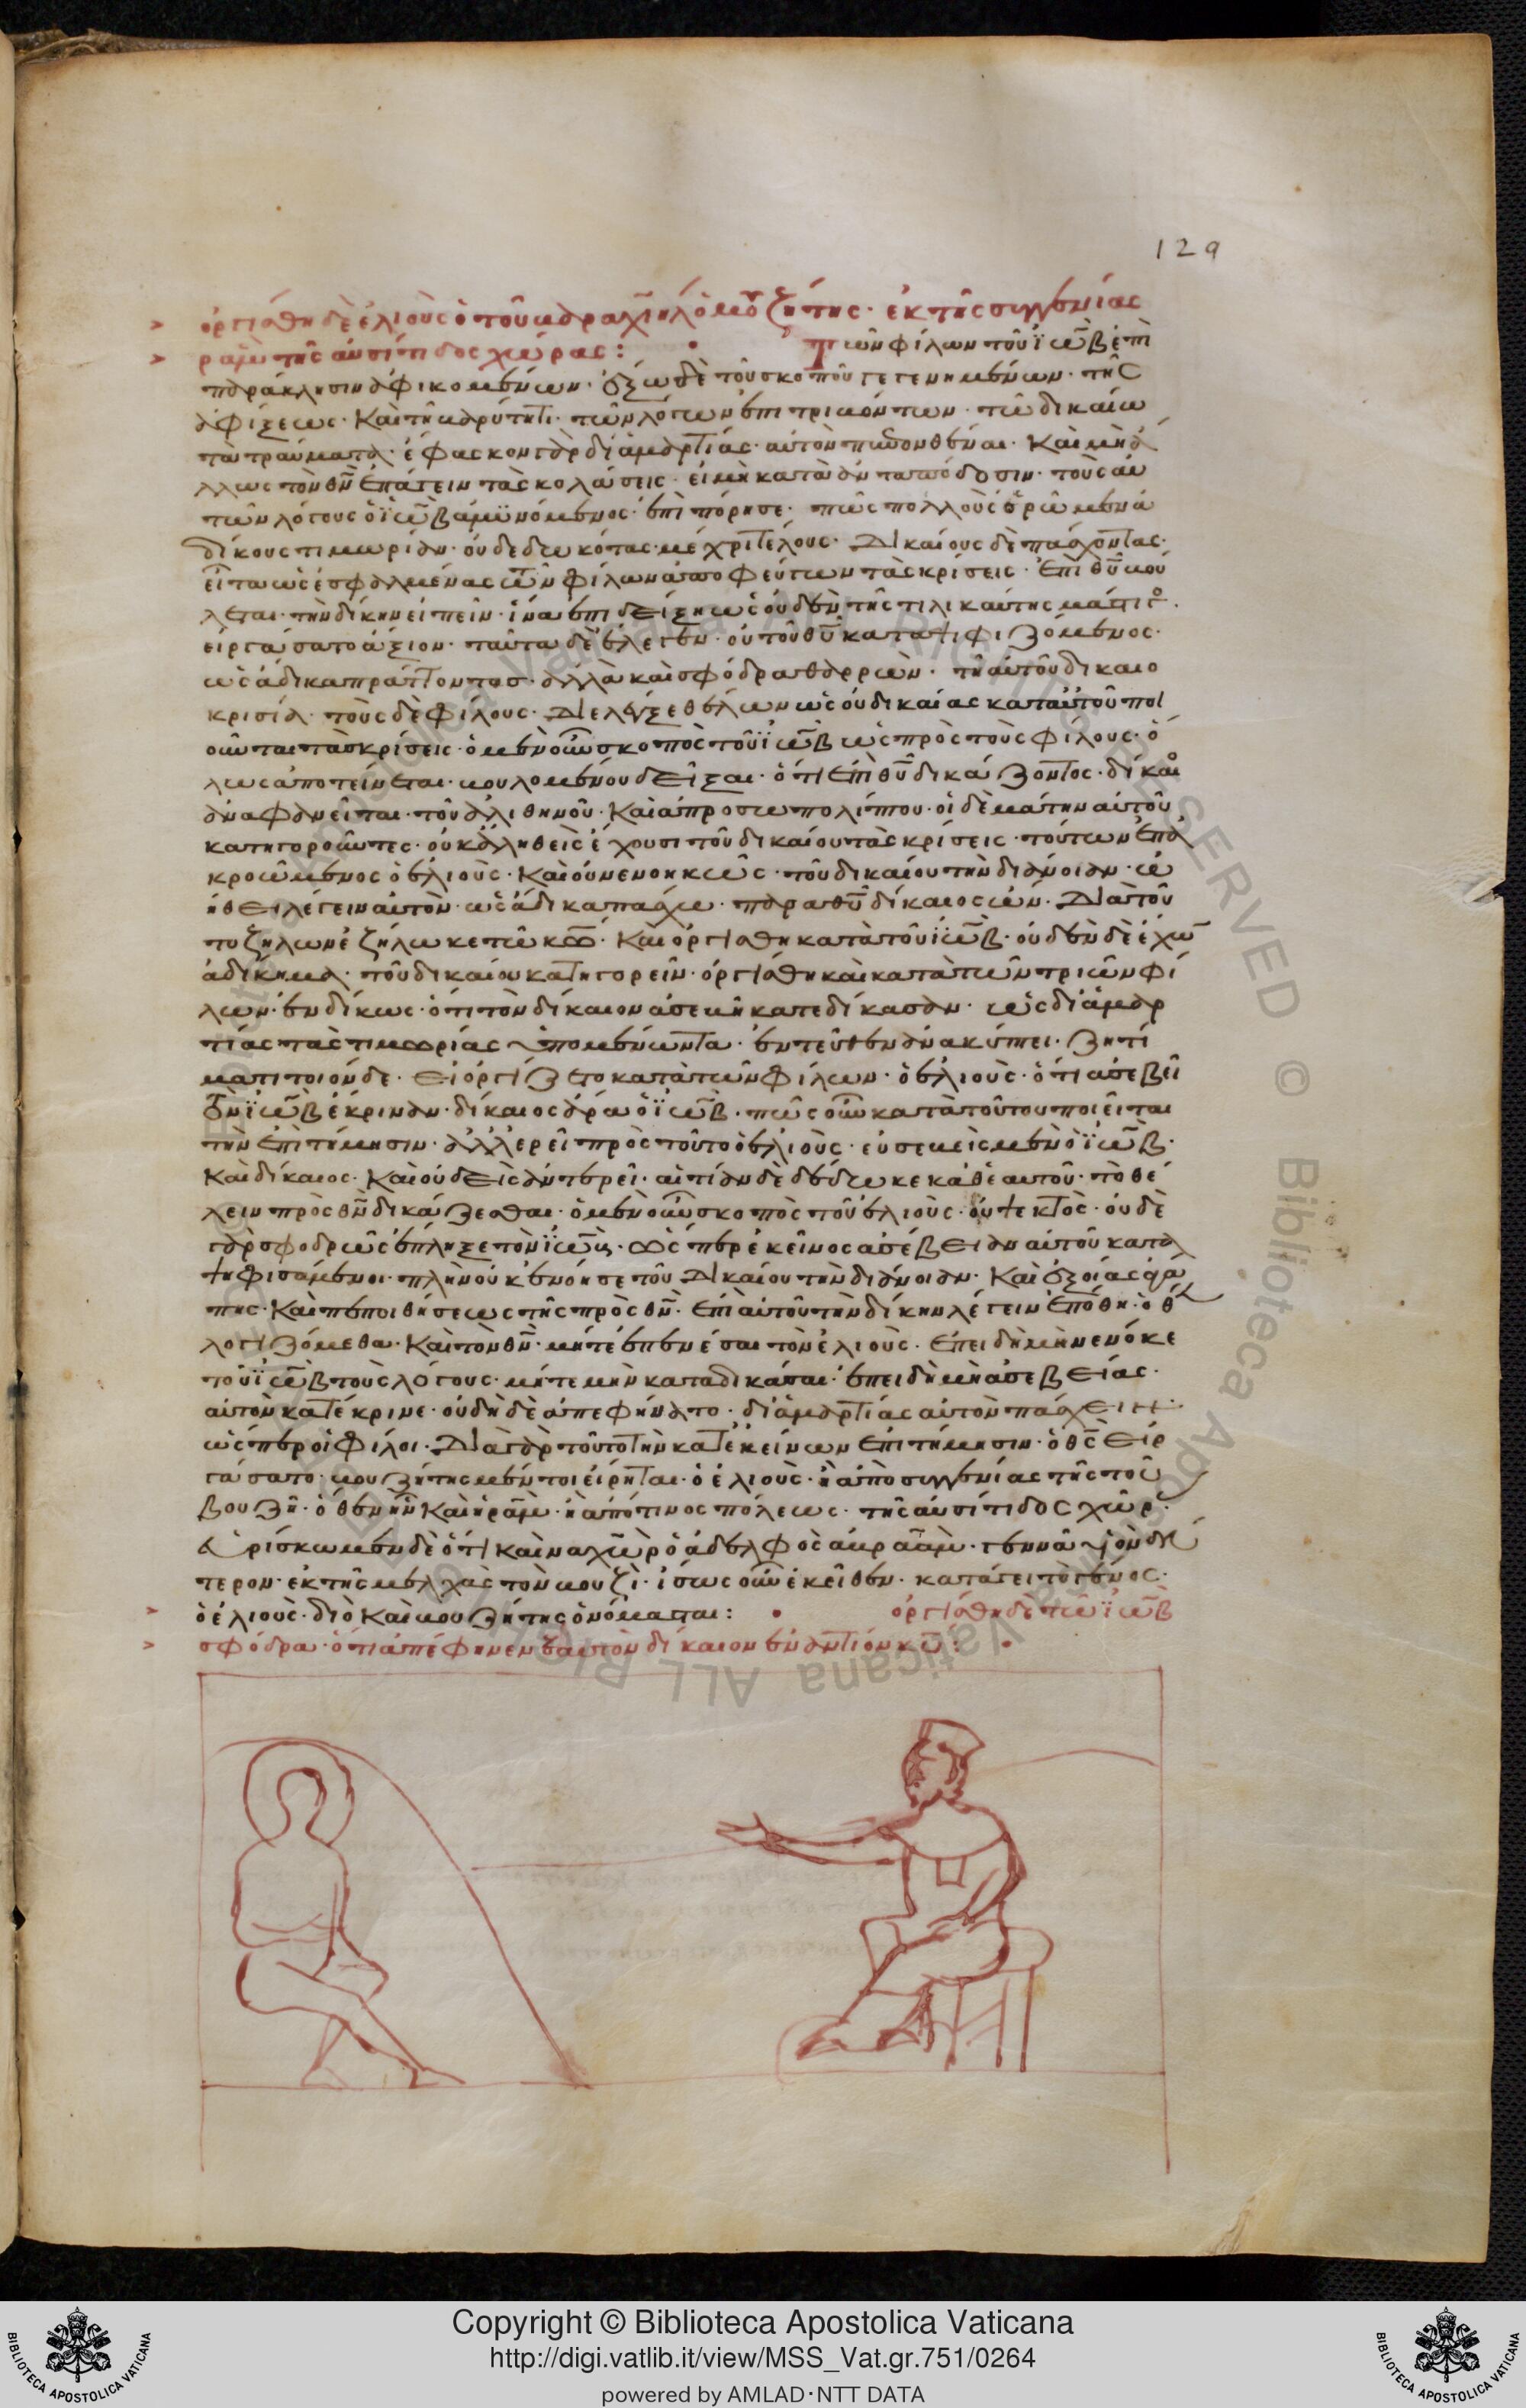 129
ὀργίσθη δὲ ἐλιοὺς ὁ τοῦ βαραχιὴλ ὁ βουζήτης· ἐκ τῆς συγγενίας
ραμ τῆς αυσίτιδος χώρας:
Τῶν φίλων τοῦ ϊὼβ ἐπὶ
παράκλησιν ἀφικομένων· ἔξω δὲ τοῦ σκοποῦ γεγενημένων· τῆς
ἀφίξεως· καὶ τῆ βαρύτητι· τῶν λόγων ἐπιτριβόντων· τῶ δικαίω
τὰ τραύματα· ἔφασκον γὰρ δι ἁμαρτίας· αὐτὸν πεπονθέναι· καὶ μὴ ἄ
λλως τὸν θν ἐπάγειν τὰς κολάσεις· εἰ μὴ κατὰ ἀνταπόδοσιν· τοὺς αυ
τῶν λόγους ὁ ϊὼβ ἀμϋνόμενος· ἐπιπόρησε· πῶς πολλοὺς ὁρῶμεν ἀ
δίκους τιμωρίαν· οὐ δεδωκότας· μέχρι τέλους· Δικαίους δὲ πάσχοντας·
εἶτα ὡς ἐσφαλμένας τῶν φίλων ἀποφεύγων τὰς κρίσεις· Ἐπὶ θυ βού
λεται· τὴν δίκην εἰπεῖν· ἵνα ἐπιδείξη ὡς οὐδὲν τῆς τιλικαύτης μάστιγο
εἰργάσατο ἄξιον· ταῦτα δὲ ἔλεγεν· οὐ τοῦ θυ καταψιφιζόμενος·
ὡς ἄδικα πράττοντος· ἀλλὰ καὶ σφόδρα θαρρῶν· τῆ αὐτοῦ δικαιο
κρισία· τοὺς δὲ φίλους· Διελέγξε θέλων ὡς οὐ δικαίας κατ αὐτοῦ ποι
οῦνται τὰς κρίσεις· ὁ μὲν οὖν σκοπὸς τοῦ ϊὼβ ὡς πρὸς τοὺς φίλους· ὅ
λως ἀποτείνεται· βουλομένου δεῖξαι· ὅτι ἐπὶ θυ δικάζοντος· δίκαιο
ἀναφανεῖται· τοῦ ἀλιθηνοῦ· καὶ ἀπροσωπολίπτου· οἱ δὲ μάτην αὐτοῦ
κατηγοροῦντες· οὐκ ἀληθεῖς ἔχουσι τοῦ δικαίου τὰς κρίσεις· τούτων ἐπα
κροώμενος ὁ ἐλιοὺς· καὶ οὐ νενοηκὼς· τοῦ δικαίου τὴν διάνοιαν· ὠ
ήθει λέγειν αὐτὸν· ὡς ἄδικα πάσχω· παρα θυ δίκαιος ὤν· Διὰ τοῦ
το ζηλων ἐζήλωκε τῶ κω· Καὶ ὀργίσθη κατὰ τοῦ ϊὼβ· οὐδὲν δὲ ἔχων
ἀδίκημα· τοῦ δικαίου κατηγορεῖν· ὀργίσθη καὶ κατὰ τῶν τριῶν φί
λων· ἐνδίκως· ὅτι τὸν δίκαιον ἀσεβῆ κατεδίκασαν· ὡς δι ἁμαρ
τίας τὰς τιμωρίας ὑπομένωντα· ἐντεῦθεν ἀνακύπτει· Ζητή
ματι τοιόνδε· Εἰ ὀργίζετο κατὰ τῶν φίλων· ὁ ἐλιοὺς· ὅτι ἀσεβεῖ
τὸν ϊὼβ ἔκριναν· δίκαιος ἄρα ὁ ϊὼβ· πῶς οὖν κατὰ τούτου ποιεῖται
τὴν ἐπιτήμησιν· ἀλλ ἐρεῖ πρὸς τοῦτο ὁ ἐλιοὺς· εὐσεβεὶς μὲν ὁ ϊὼβ·
Καὶ δίκαιος· Καὶ οὐδεὶς ἀντερεῖ· αἰτίαν δὲ δέδωκε καθ ἑαυτοῦ· τὸ θέ
λειν πρὸς θν δικάζεσθαι· ὁ μὲν οὖν σκοπὸς τοῦ ἐλιοὺς· οὐ ψεκτὸς· οὐδὲ
γὰρ σφοδρῶς ἐπληξε τὸν ϊὼβ· ὥσπερ ἐκεῖνος ἀσέβειαν αὐτοῦ κατα
ψηφισάμενοι· πλὴν οὐκ ἐνόησε τοῦ Δικαίου τὴν διάνοιαν· Καὶ ἐξ οίας ἀγά
πης· Καὶ πεποιθήσεως τῆς πρὸς θν· Ἐπὶ αὐτοῦ τὴν δίκην λέγειν ἐπόθη·
λογιζόμεθα· Καὶ τὸν θν· μήτε ἐπενέσαι τὸν ἐλιοὺς· ἐπειδὴ μὴ νενόκε
τοῦ ϊὼβ τοὺς λόγους· μήτε μὴν καταδικάσαι· ἐπειδὴ μὴ ἀσεβείας·
αὐτὸν κατέκρινε· οὐδὴ δὲ ἀπεφήνατο· δι ἁμαρτίας αὐτὸν πάσχειν·
ὥσπερ οἱ φίλοι· Διὰ γὰρ τοῦτο τὴν κατ ἐκείνων ἐπιτήμησιν· ὁ θς εἰρ
γάσατο· βουζήτης μέντοι εἴρηται· ὁ ἐλιοὺς· ἢ ἀπὸ συγγενίας τῆς τοῦ
βουζὴ· ὅθεν ἦν καὶ ἡ ραμ· ἢ ἀπό τινος πόλεως· τῆς αυσίτιδος χώρ·
Εὑρίσκωμεν δὲ ὅτι καὶ ναχὼρ ὁ ἀδελφὸς αβραὰμ· γεννᾶ υἱὸν δεύ
τερον· ἐκ τῆς μελχὰς τὸν βουζὶ· ἴσως οὖν ἐκεῖθεν· κατάγει τὸ γένος·
ὁ ἐλιοὺς· διὸ καὶ βουζήτης ὀνόμασται:
ὀργίσθη δὲ τῶ ϊὼβ
σφόδρα· ὅτι ἀπέφηνεν ἑαυτὸν δίκαιον ἐναντίον κυ:
Copyright © Biblioteca Apostolica Vaticana
http://digi.vatlib.it/view/MSS_Vat.gr.751/0264
powered by AMLAD·NTT DATA